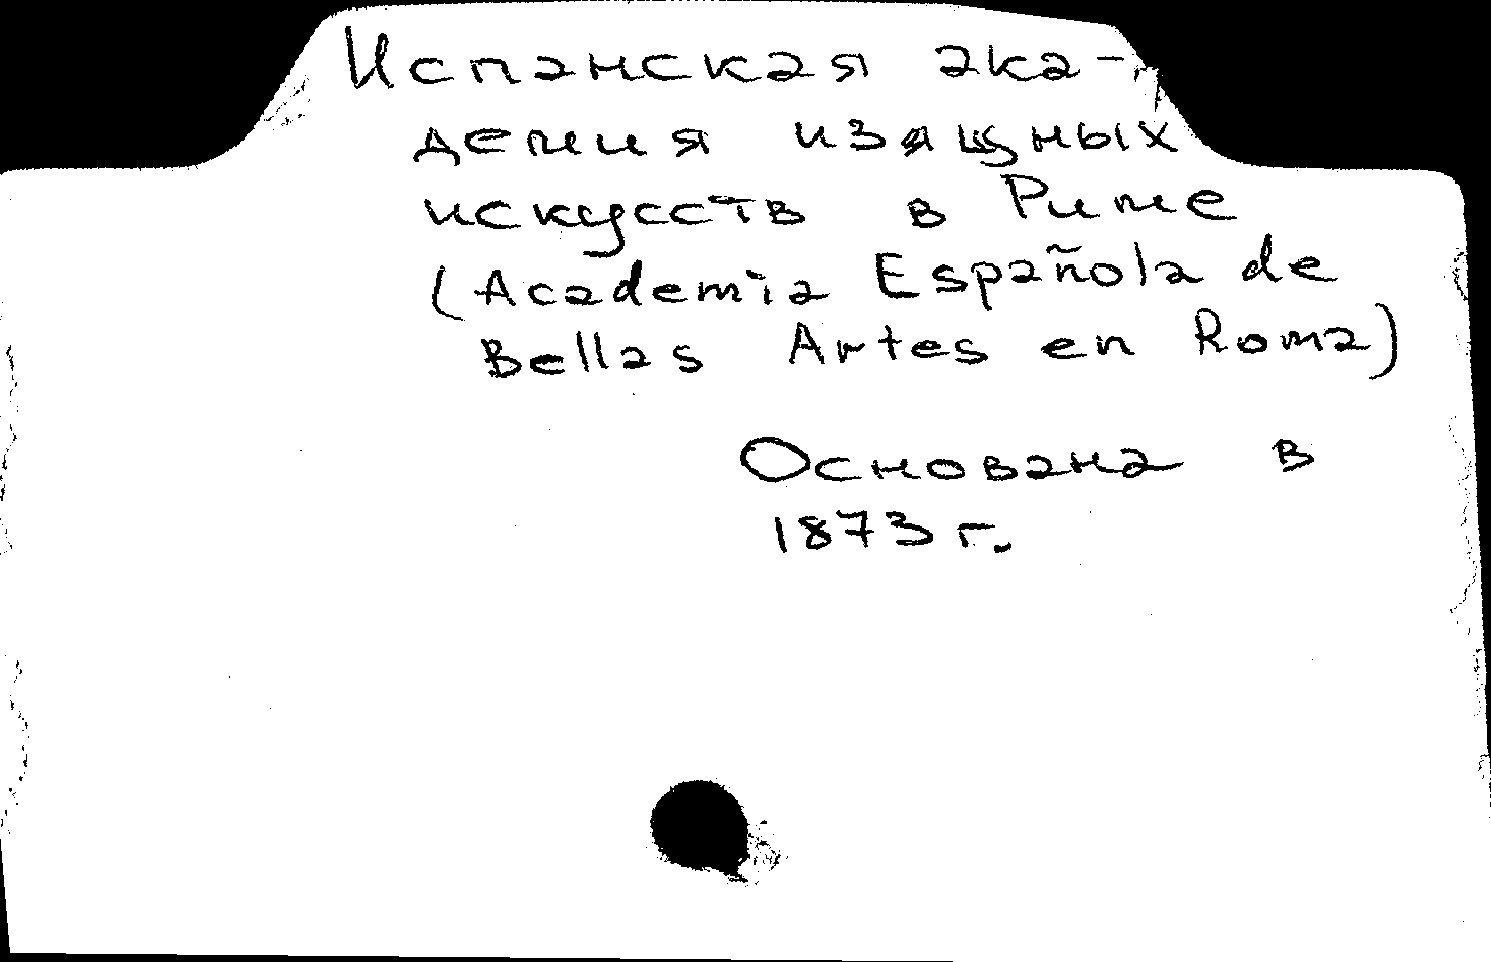 Испанская ака-
демия изящных
искусств в Риме
(Academia Española de
Bellas Artes en Roma)
Основана в
1873 г.